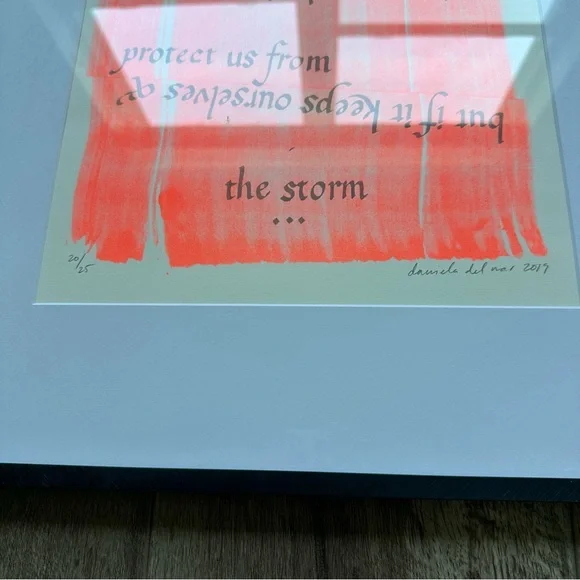 protect us from
but if it keeps ourselves &
the storm
20/25
daniela del mar 2019